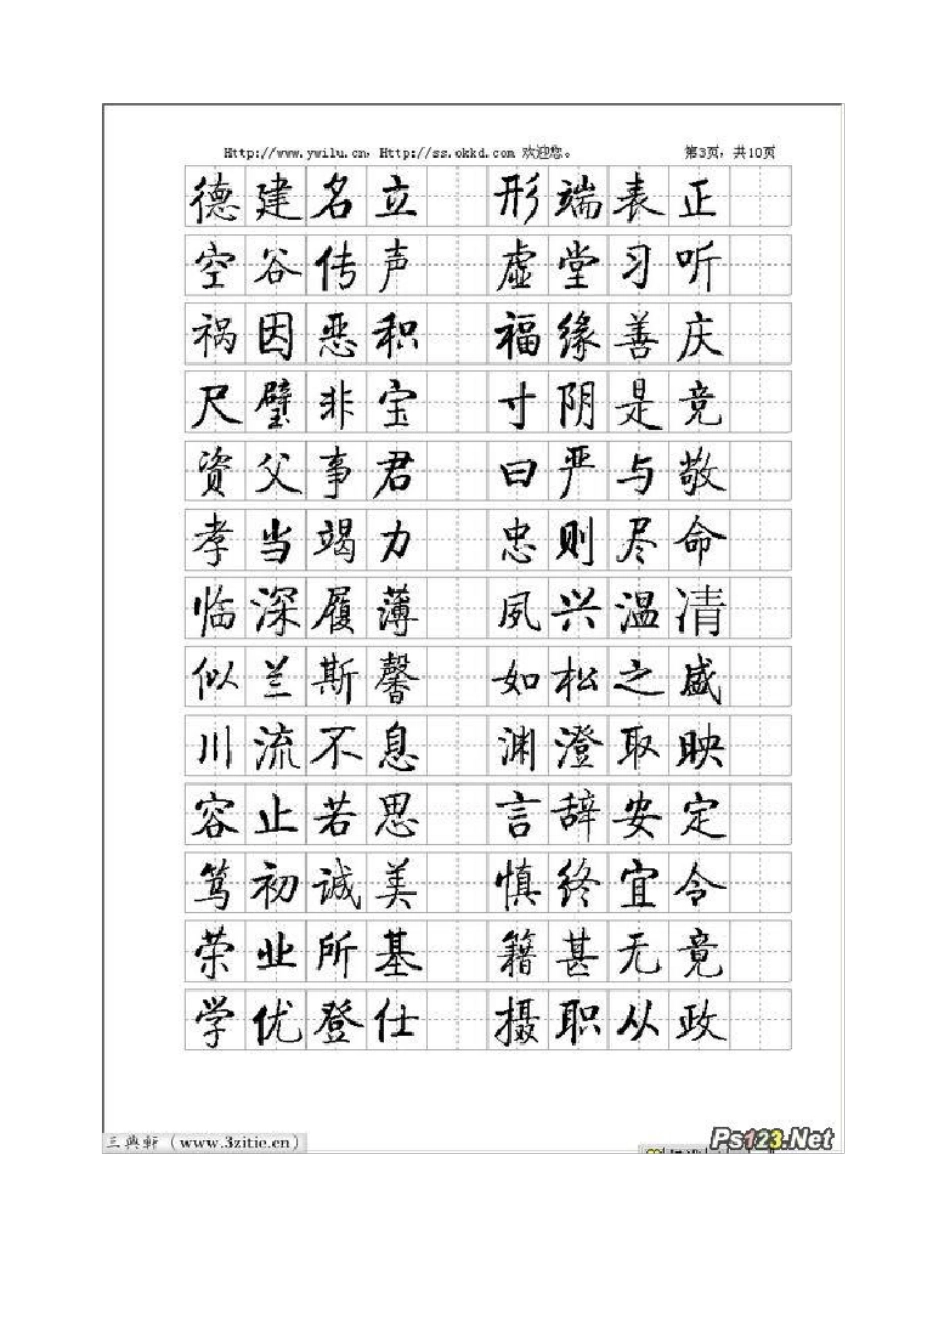 Http://www.ywilu.cn，Http://ss.okkd.com 欢迎您。 第3页，共10页
德建名立 形端表正
空谷传声 虚堂习听
祸因恶积 福缘善庆
尺璧非宝 寸阴是竞
资父事君 曰严与敬
孝当竭力 忠则尽命
临深履薄 夙兴温凊
似兰斯馨 如松之盛
川流不息 渊澄取映
容止若思 言辞安定
笃初诚美 慎终宜令
荣业所基 籍甚无竟
学优登仕 摄职从政
三典軒（www.3zitie.cn）
Ps123.Net